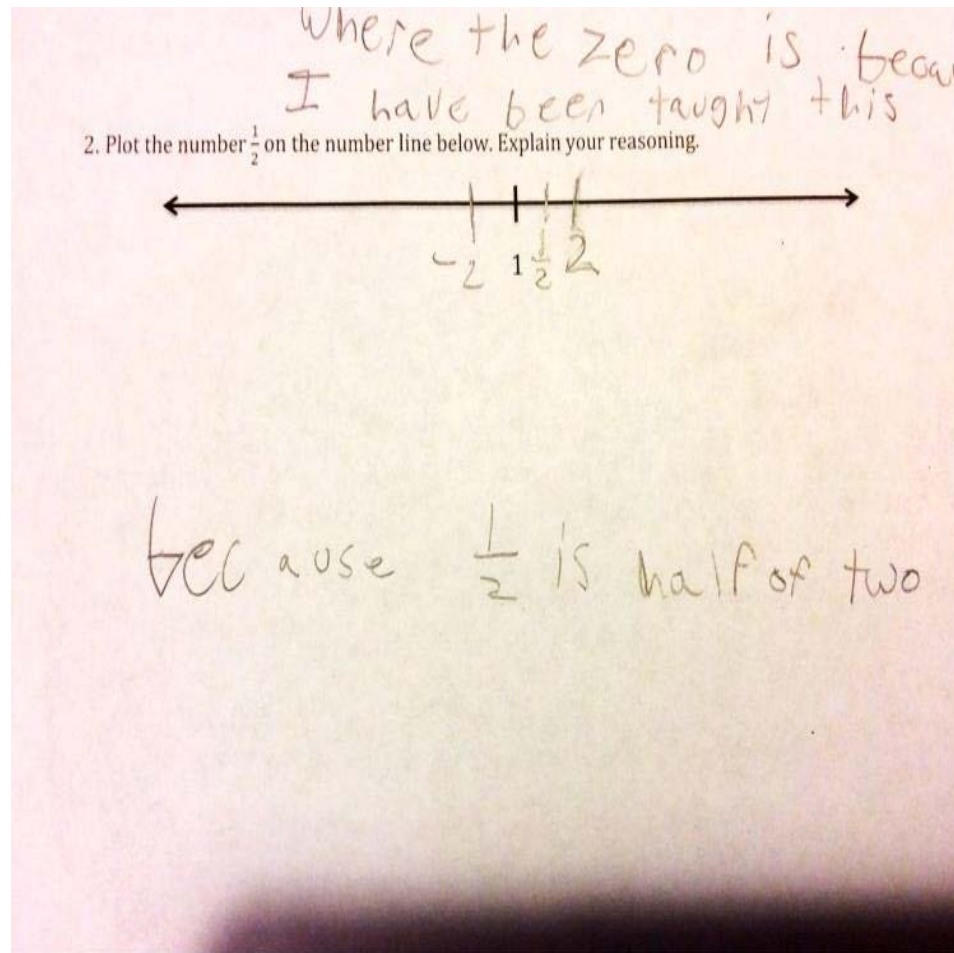 where the zero is becau
I have been taught this
2. Plot the number 1/2 on the number line below. Explain your reasoning.
-2 1 1/2 2
because 1/2 is half of two